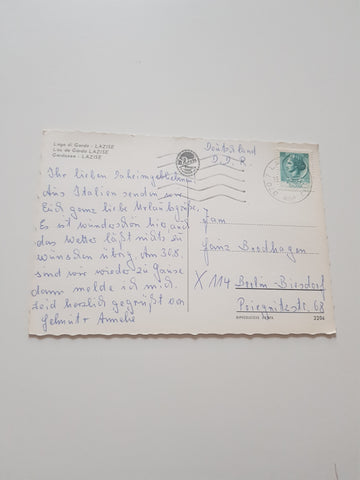 Lago di Garda - LAZISE
Lac de Garda LAZISE
Gardasee - LAZISE
Deutschland
D.D.R.
Ihr lieben Daheimgebliebenen
Aus Italien senden wir
Euch ganz liebe Urlaubsgrüße,
Es ist wunderschön hier und
das Wetter läßt nichts zu
wünschen übrig. Am 30.8.
sind wir wieder zu Hause
dann melde ich mich.
Seid herzlich gegrüßt von
Helmut + Amelie
Fam
Hans Brodhagen
X 114 Berlin Biesdorf
Priegnitzstr. 68
2206